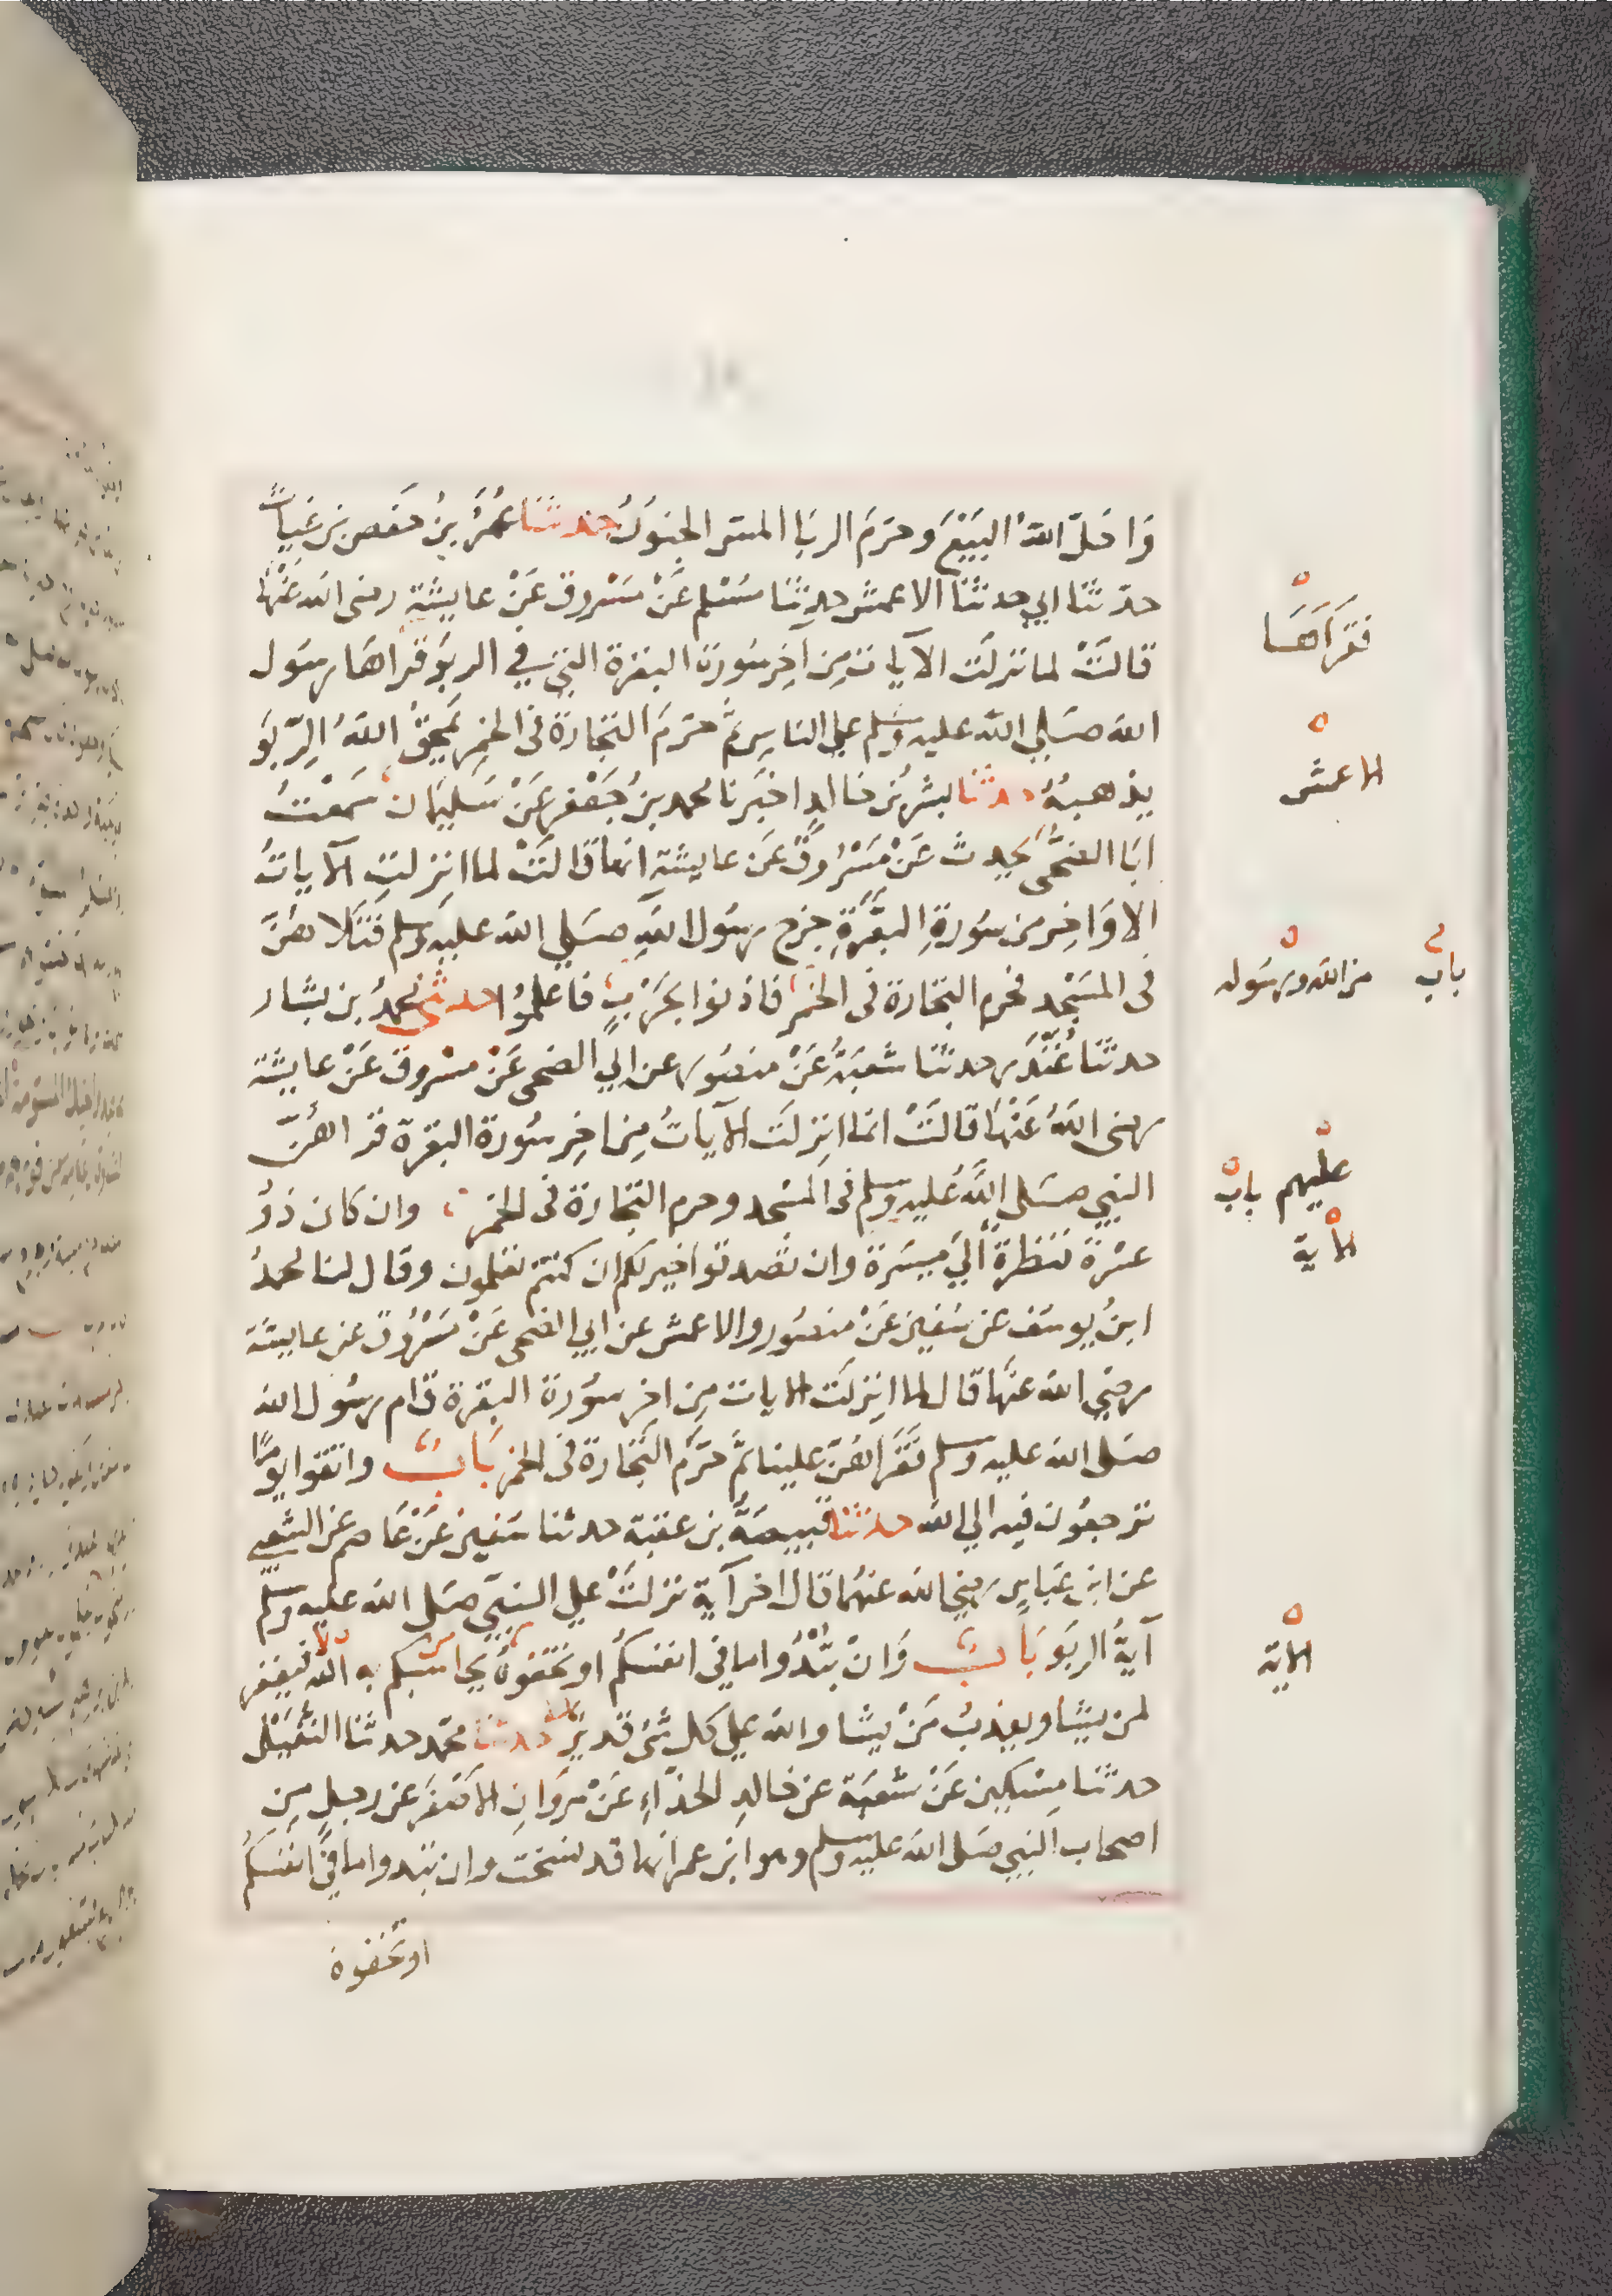 وَاحَلّ اللهُ البَيْعَ وحرَمَ الربَا المس الجنوُنُ حدثنا عُمَرُ بنُ حَفص بن غياثٍ
حدّثنَا ابي حدثنَا الاعمش حدثنَا مُسْلم عَنْ مَسْروق عَنْ عايشة رضى الله عَنْهَا
قالتْ لما نزلَت الآيات مِن آخِر سُورة البقرة التي في الربوَ قراهَا رسُول
الله صَلي الله عليه وسلم علي الناسِ ثمَّ حَرَمَ التجَارةَ فى الخمرِ يَمحَقُ اللهُ الرِّبوَ
يذهبهُ حدثنا بشر بنُ خالدٍ اخبَرنا محمد بنُ جَعْفر عَنْ سَليمَان سَمعْتُ
ابَا الضحَّى يحدث عَنْ مَسْرُوقٍ عَن عايشة انها قالَتْ لما انزلتِ الآياتُ
الاوَاخِر من سُورةِ البَقَرَةِ خرج رسُول اللهِ صَلي الله عليهِ وسلم فَتَلاهُنَّ
فى المسَجْد فحرم التجارة فى الخمر فاذنوا بحَرْبٍ فاعلموُا حدثنى محمدُ بن بشار
حدثنَا غُنْدَر حدثنا شعْبَةُ عَنْ منصُور عن ابي الضحى عَنْ مسْروق عَنْ عايشة
رضى اللهُ عَنْهَا قالَتْ لما انزلَت الآياتُ مِن اخِر سُورة البقرة قراهُنّ
النبي صَلى اللهُ عَليهِ وسلم فى المسْجد وحرم التجارة فى الخمر وان كان ذوُ
عسْرة فنَظرةٌ اليَ ميسَرة وان تصدقوا خير لكم ان كنتم تعلمون وقال لنا محمدُ
ابنُ يوسُف عن سُفيَن عَنْ منصُور والاعمش عن ابي الضحى عَنْ مَسْرُوق عن عايشة
رضي الله عنهَا قال لما انزلَت الايات مِن اخر سوُرة البقرة قام رسُول الله
صَلى الله عليه وسلم فقَرَاهُنّ علينا ثمَّ حَرَّمَ التجَارة فى الخمر بَابُ واتقوا يومًا
ترجعُون فيه الي الله حدثنا قبيصَةُ بن عقبة حدثنا سُفيَن عَنْ عَاصم عن الشعبي
عن ابن عَباسٍ رضي الله عنهُما قال اخر آية نزلَتْ علي النبيِّ صَلى الله عليه وسلم
آيةُ الربوَ بَابُ وَانْ تبْدُوا ما في انفسكُم او تخفُوهُ يحاسبكم به الله فيغفر
لمن يشا ويعذبُ مَنْ يشا والله علي كل شئ قدير حدثنا محمّد حدثنا النفَيْلى
حدثنا مِسْكِين عَنْ شعْبَة عن خالدِ الحذاءِ عَنْ مروَانِ الاصْفَر عن رجلٍ مِن
اصحاب النبي صَلى الله عليه وسلم وهو ابن عمر انها قد نسخت وان تبدوا ما فى انفسَكُم
او تخفوه
فقرَاَهَا
الاعمش
من الله ورسُوله
باب
عليهم باب
الاية
الاية